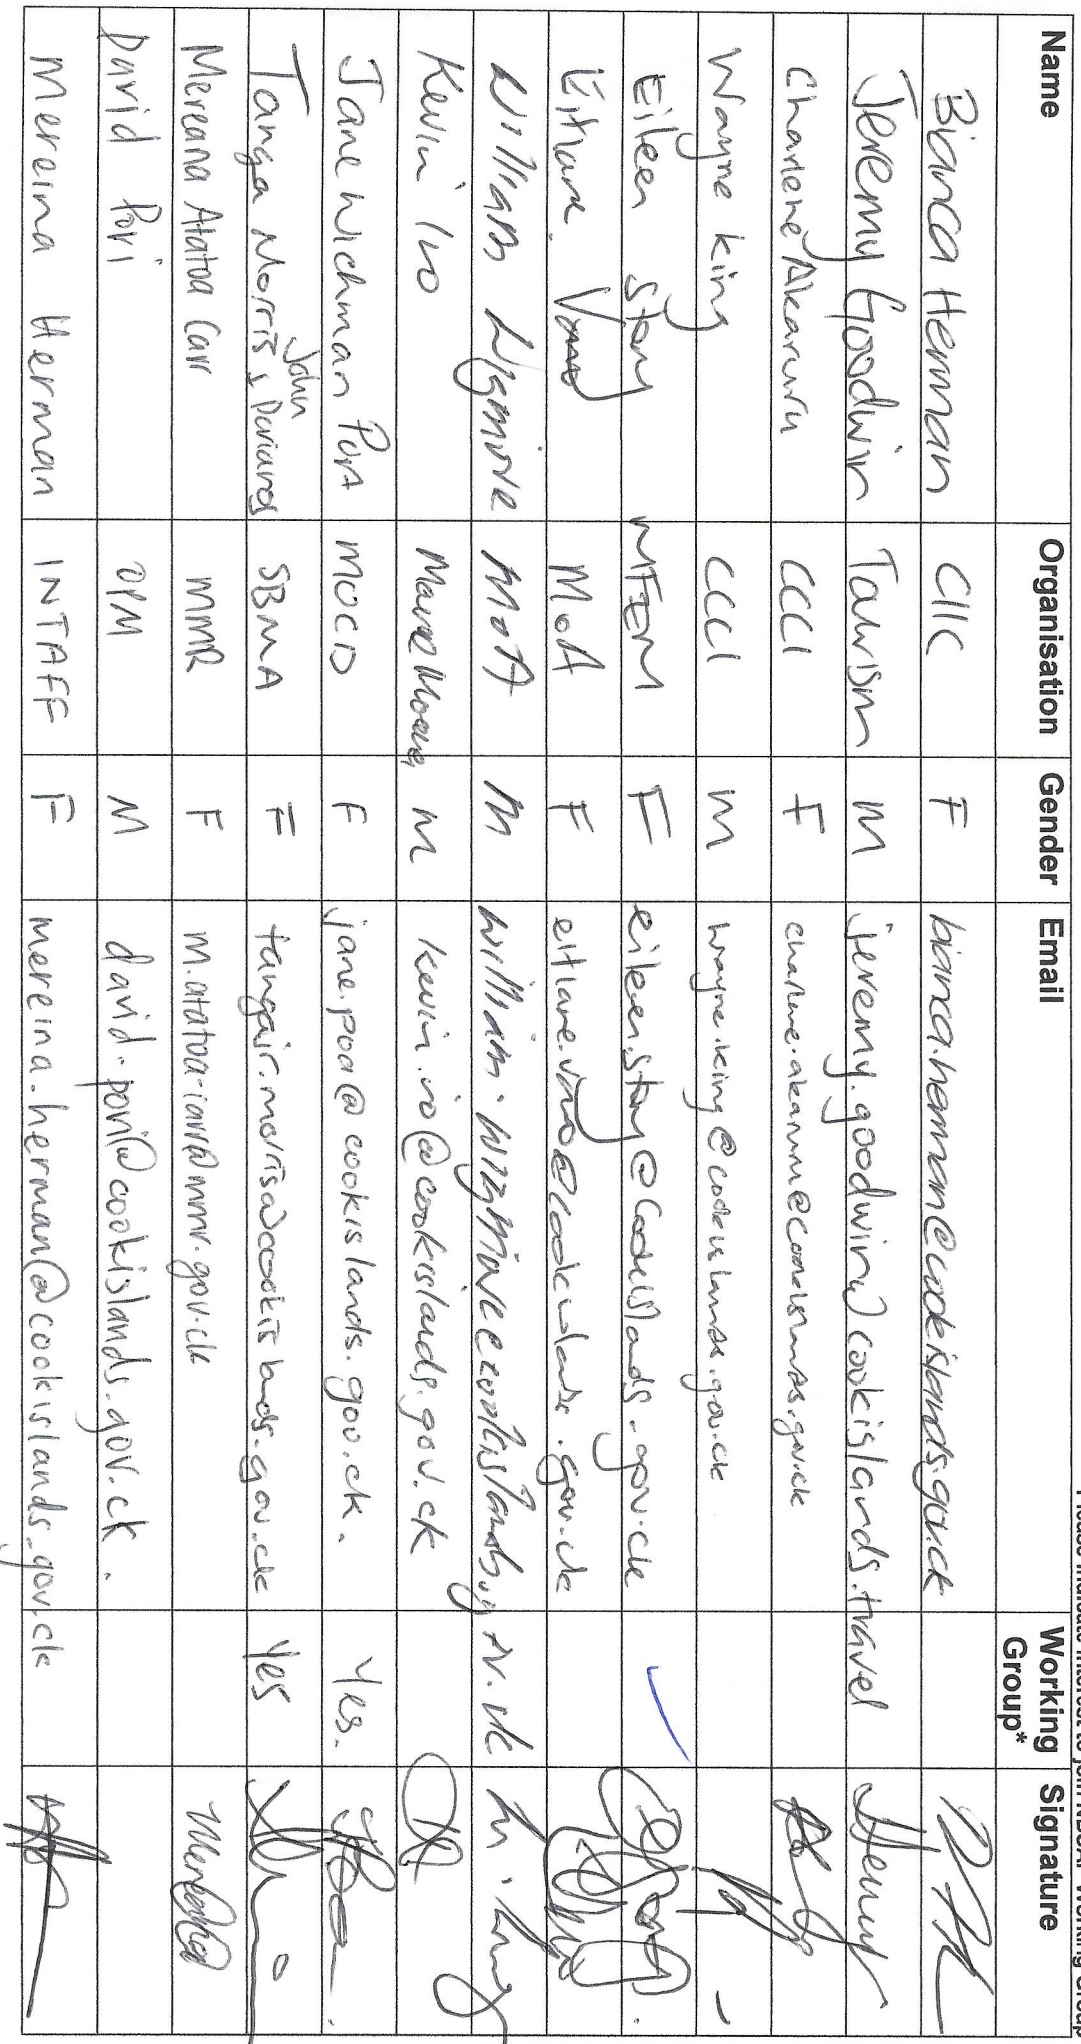 Please indicate interest to join NBSAP Working Group
Name Organisation Gender Email Working Group* Signature
Bianca Herman CIIC F bianca.herman@cookislands.gov.ck
Jeremy Goodwin Tourism M jeremy.goodwin@cookislands.travel
Charlene Akaruru CCCI F charlene.akaruru@cookislands.gov.ck
Wayne King CCCI M wayne.king@cookislands.gov.ck
Eileen Story MFEM F eileen.story@cookislands.gov.ck
Eitiare MoA F
William Wigmore MoA M william.wigmore@cookislands.gov.ck
Kevin Iro Marae Moana M kevin.iro@cookislands.gov.ck
Jane Wichman Poa MOCD F jane.poa@cookislands.gov.ck. Yes.
John
Tanga Morris & SBMA F tangair.morris@cookislands.gov.ck Yes
Mereana Atatoa Carr MMR F m.atatoa-carr@mmr.gov.ck
David Pori OPM M david.pori@cookislands.gov.ck.
Mereina Herman INTAFF F mereina.herman@cookislands.gov.ck